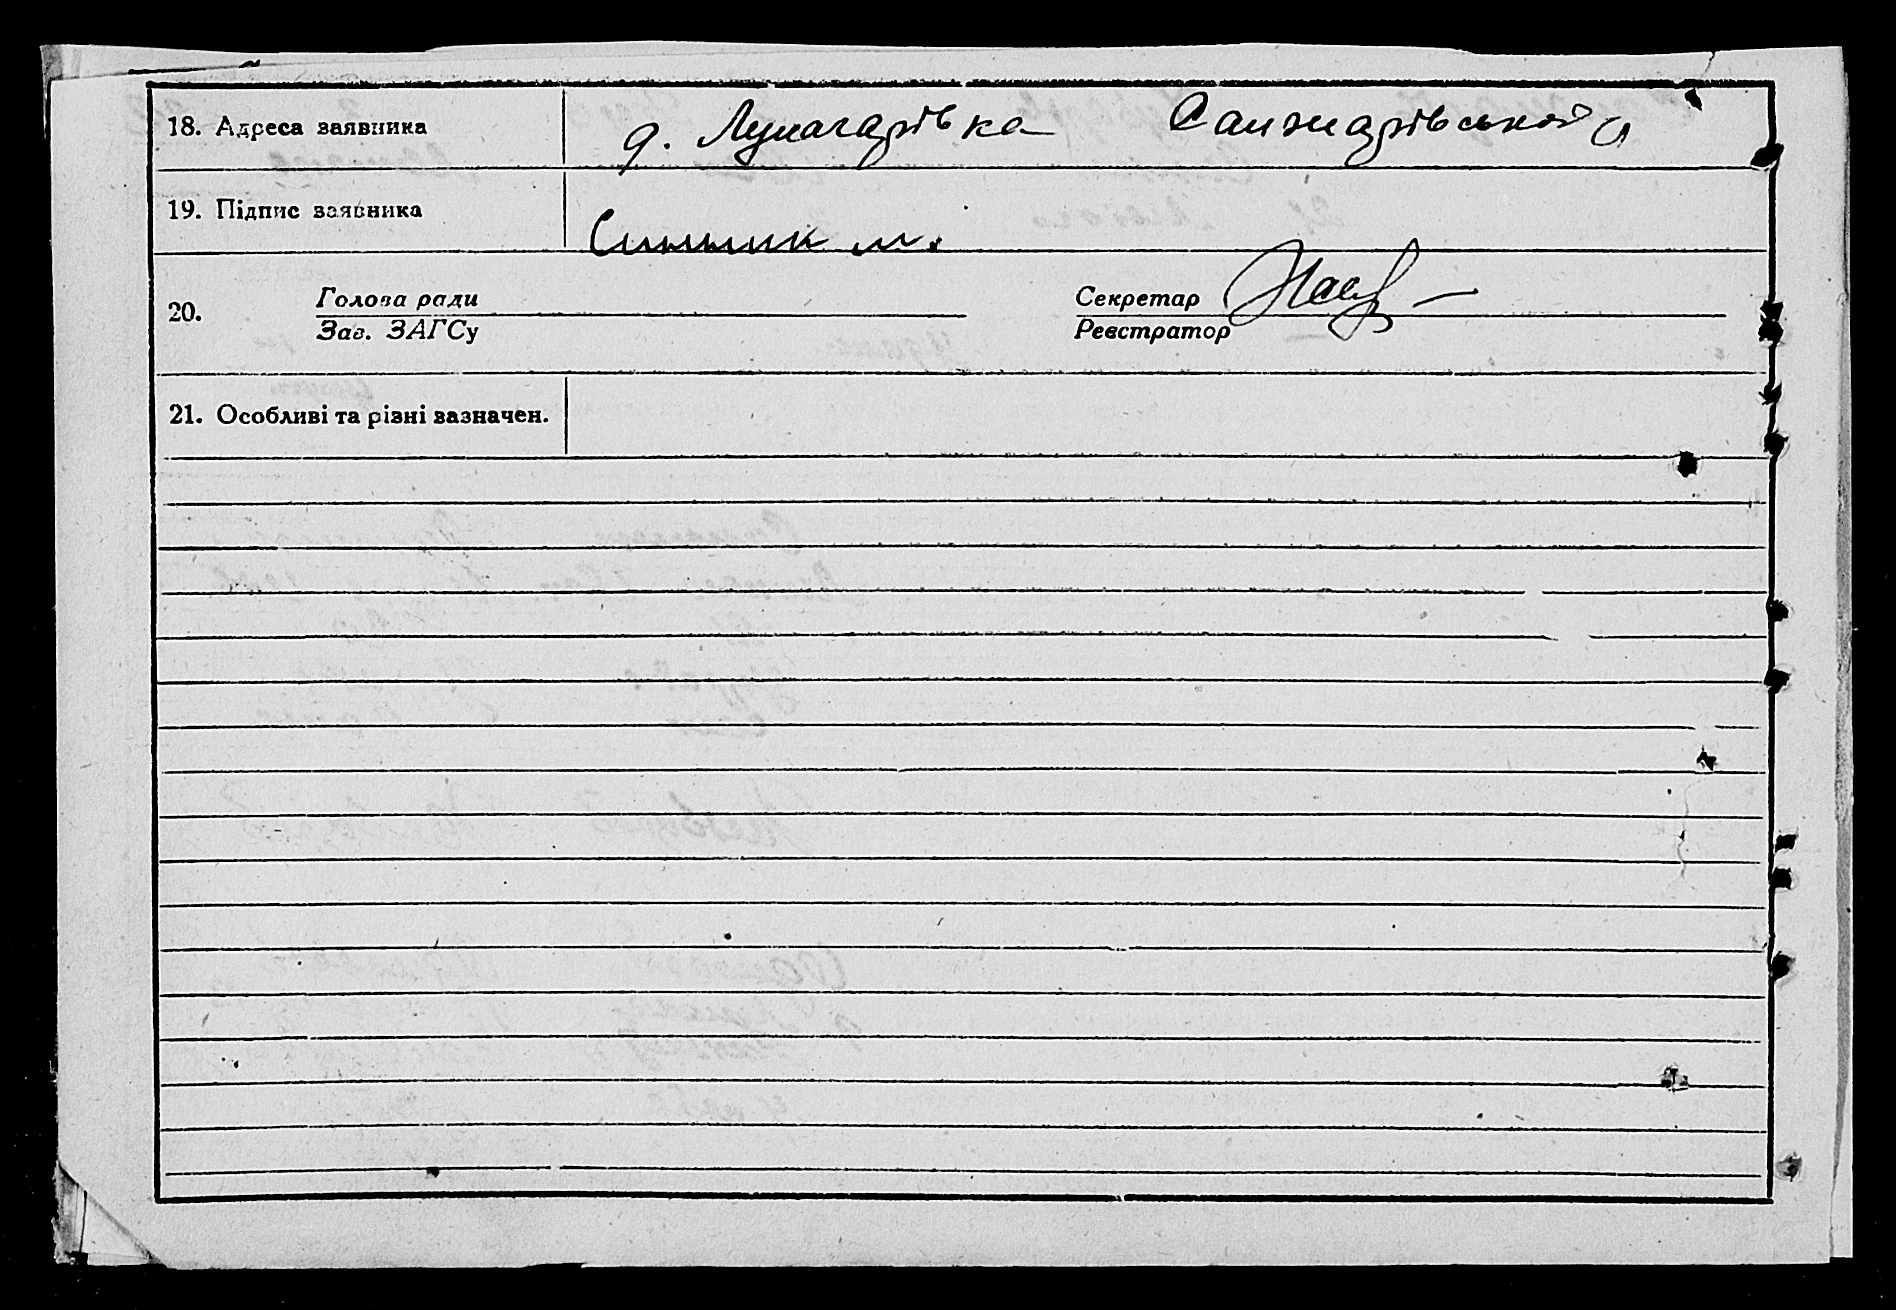 18. Адреса заявника
д. Луначарівка Санжарівської
19. Підпис заявника
Синник М.
20. Голова ради
Зав. ЗАГСу
Секретар
Реєстратор
21. Особливі та різні вазначен.